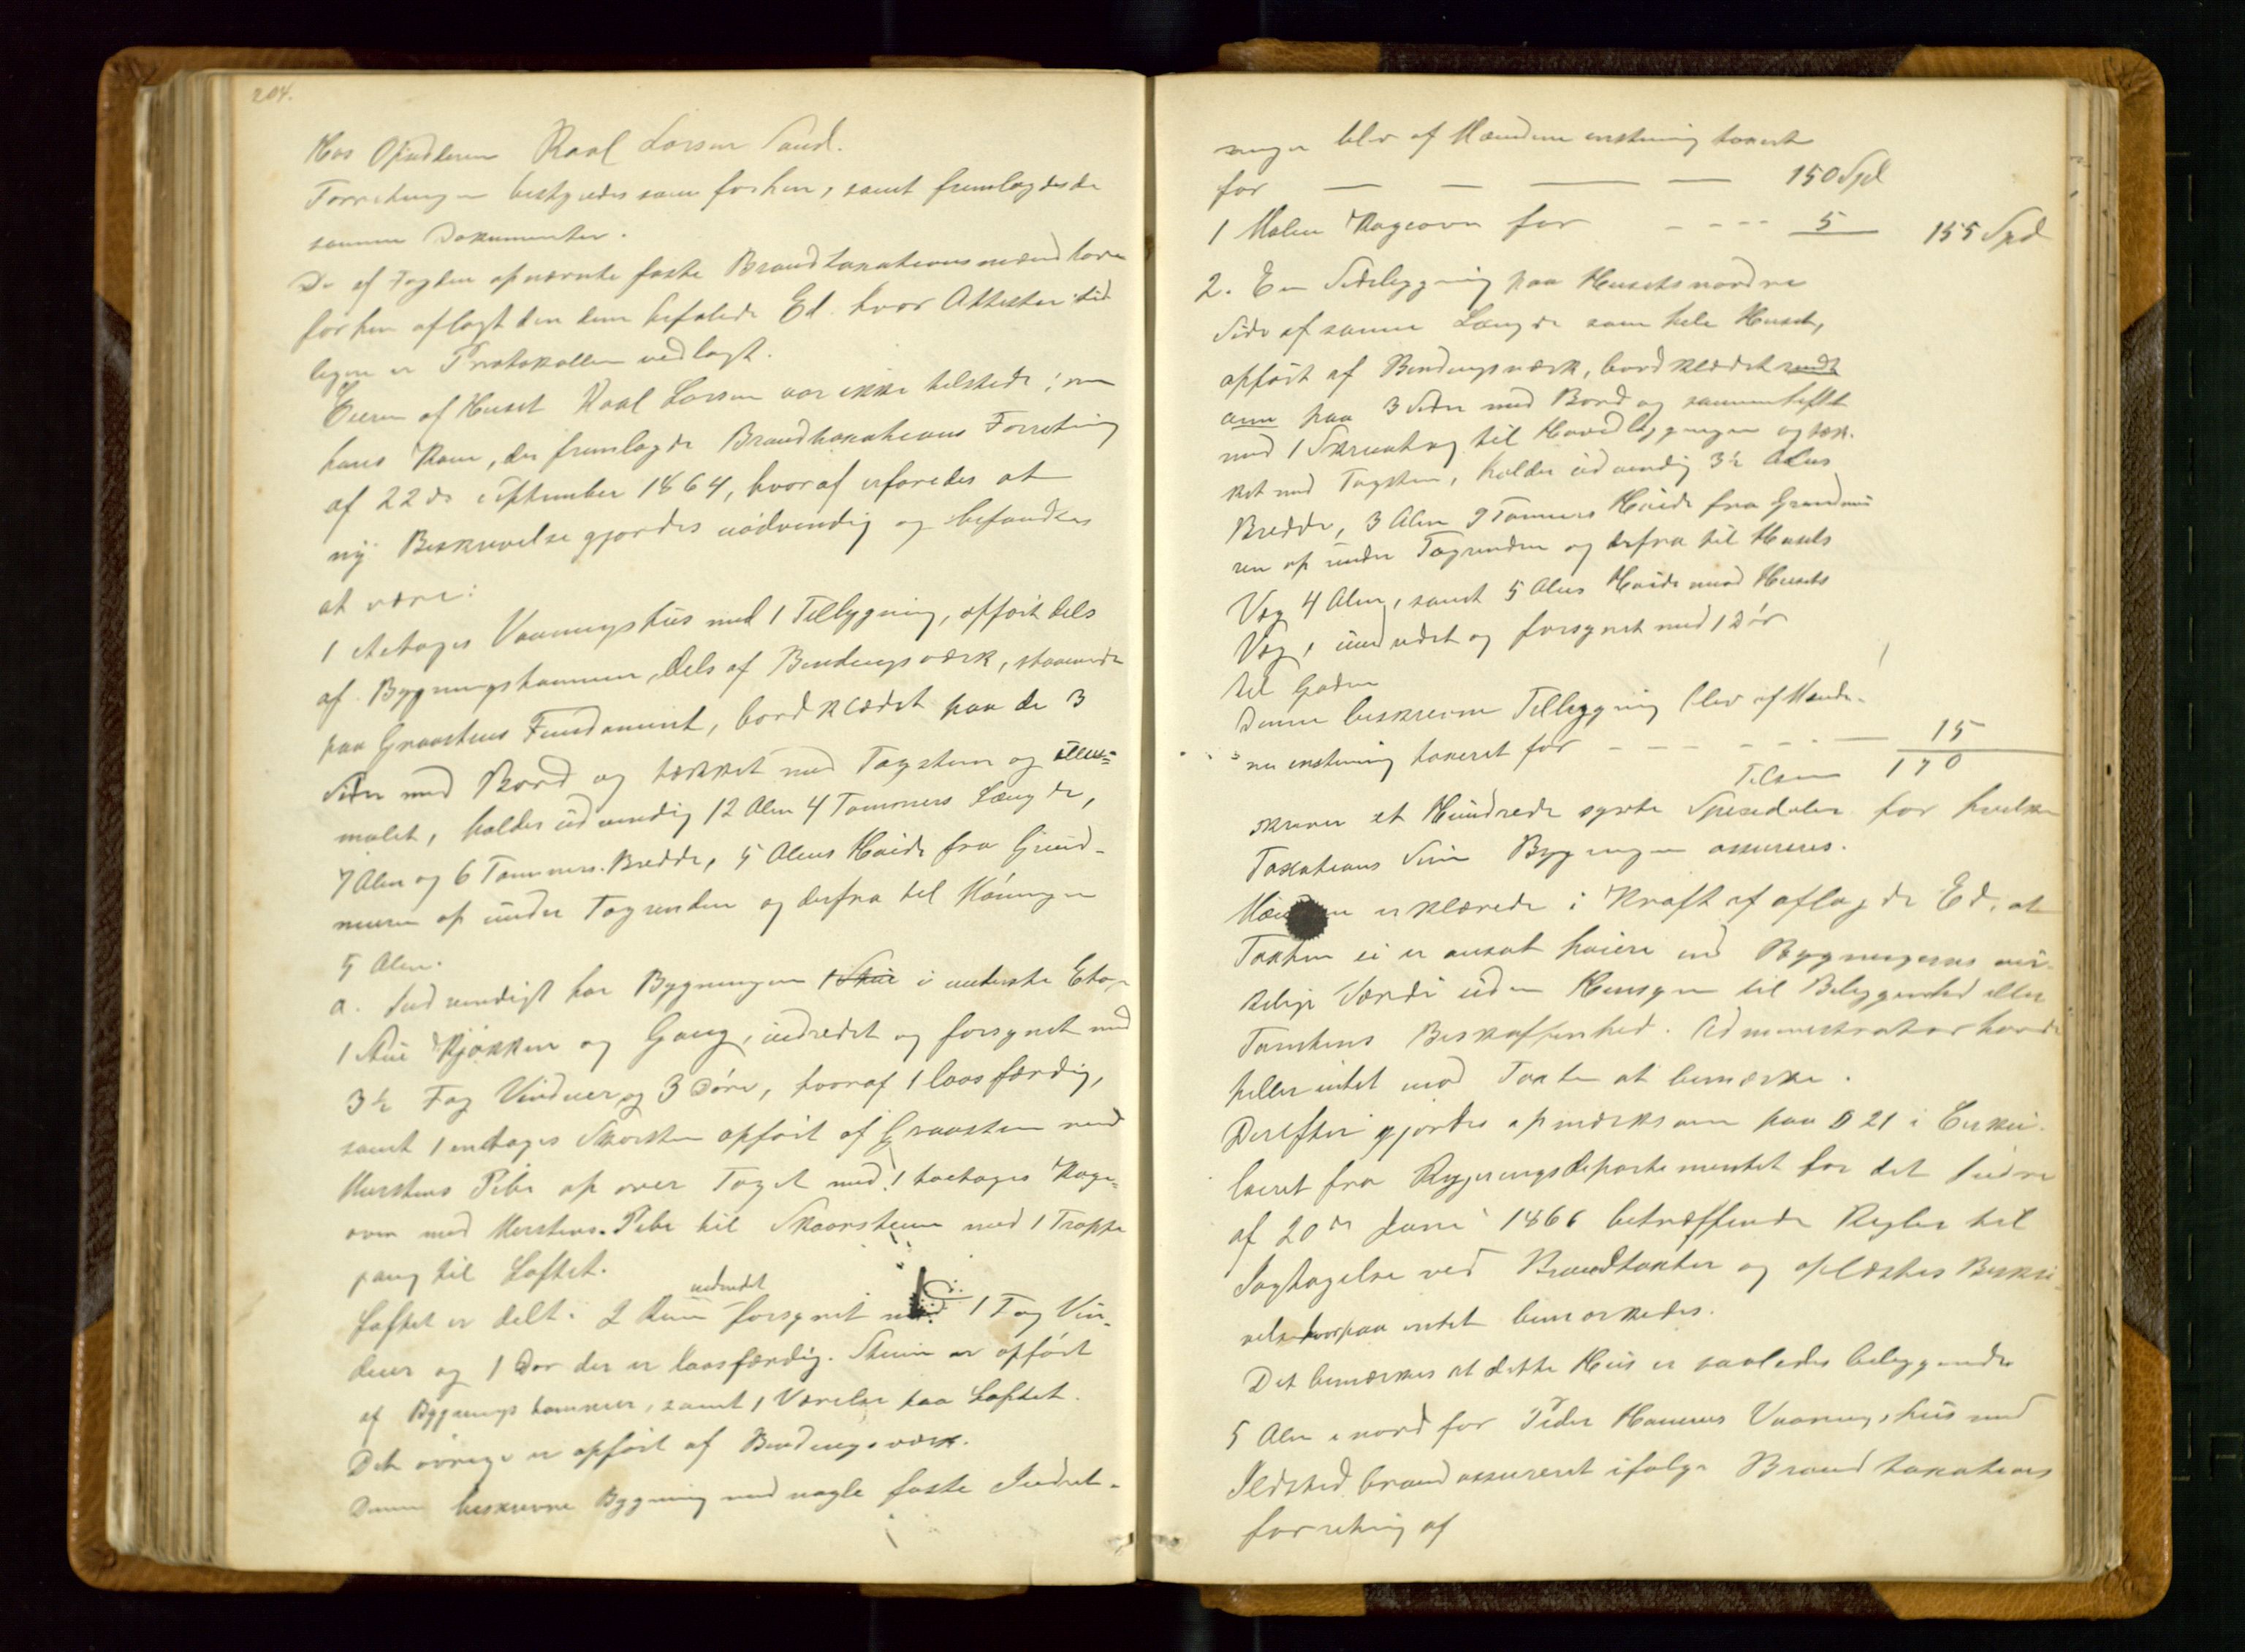 204.
Hos Opsidderen Roal Larsen Sand.
Forretningen bestyredes som forhen, samt fremlagdes de
samme Dokumenter.
De af Fogden opnævnte faste Brandtaxationsmænd have
forhen aflagt den dem befalede Ed. hvor Attester tid
ligere er Protokollen vedlagt.
Eieren af Huset Roal Larsen var ikke tilstede; men
hans Kone, der fremlagde Brandtaxations Forretning
af 22de September 1864, hvoraf erfaredes at
ny Beskrivelse gjordes nödvendig og befandtes
at være:
1 Etages Vaaningshus med 1 Tilbygning, opfört dels
af Bygningstömmer, dels af Bindingsværk, staaende
paa Graastens Fundament, bordklædet paa de 3
Sider med Bord og tækket med Tagsten og
malet, holder udvendig 12 Alen 4 Tommers Længde,
7 Alen og 6 Tommers Bredde, 5 Alens Höide fra Grund-
muren op under Tagrenden og derfra til Möningen
5 Alen.
a. Indvendigt har Bygningen 1 Stue i underste Etage
1 Stue Kjøkken og Gang, indredet og forsynet med
3½ Fag Vinduer og 3 Döre, hvoraf 1 laasfærdig,
samt 1 enetages Skorsten opfört af Graasten med
Mursteins Pibe op over Taget med 1 toetages Kage-
ovn med Murstens Pibe til Skaarstenen med 1 Trappe
gang til Loftet.
indredet
Loftet er delt i 2 Rum forsynet med 1 Fag Vin-
duer og 1 Dør der er laasfærdig. Stuen er opfört
af Bygningstömmer, samt 1 Værelse paa Loftet.
Det övrige er opfört af Bindingsværk.
Denne beskrevne Bygning med nagle faste Indret-
ninger blev af Mændene enstemmig taxeret
for — — — — 150 Spd
1 Malm Kageovn for - - - - 5 155 Spd
2. En Tilbygning paa Husets nordre
Side af samme Længde som hele Huset,
opfört af Bindingsværk, bordklædet rundt
om paa 3 Sider med Bord og sammenheftet
med 1 Skruetag til Hovedbygningen og tæk-
ket med Tagsten, holder udvendig 3½ Alens
Bredde, 3 Alen 9 Tommers Höide fra Grundmu
ren op under Tagrenden og derfra til Husets
Væg 4 Alen, samt 5 Alens Höide mod Husets
Væg, indredet og forsynet med 1 Dör
til Gaden
Denne beskrevne Tilbygning blev af Mænde-
ne enstemmig taxeret for - - - - - - — 15
Tilsammen 170
skriver et Hundrede sytti Speciedaler for hvilken
Taxations Sum Bygningen assureres.
erklærede i Kraft af aflagde Ed, at
Taxten ei er ansat höiere end Bygningernes vir-
kelige Værdi uden Hensyn til Beliggenhed eller
Tomtens Beskaffenhed. Administrator havde
heller intet mod Taxten at bemærke.
Derefter gjordes opmærksom paa § 21 i Cirku-
læret fra Regjeringsdepartementet for det Indre
af 20de Juni 1866 betræffende Regler til
Iagtagelse ved Brandtaxter og oplæstes Beskri-
velsen hvorpaa intet bemærkedes.
Det bemærkes at dette Hus er saaledes beliggende
5 Alen i nord for Peder Hansens Vaaningshus med
Ildsted brandassureret ifølge Brandtaxations
forretning af